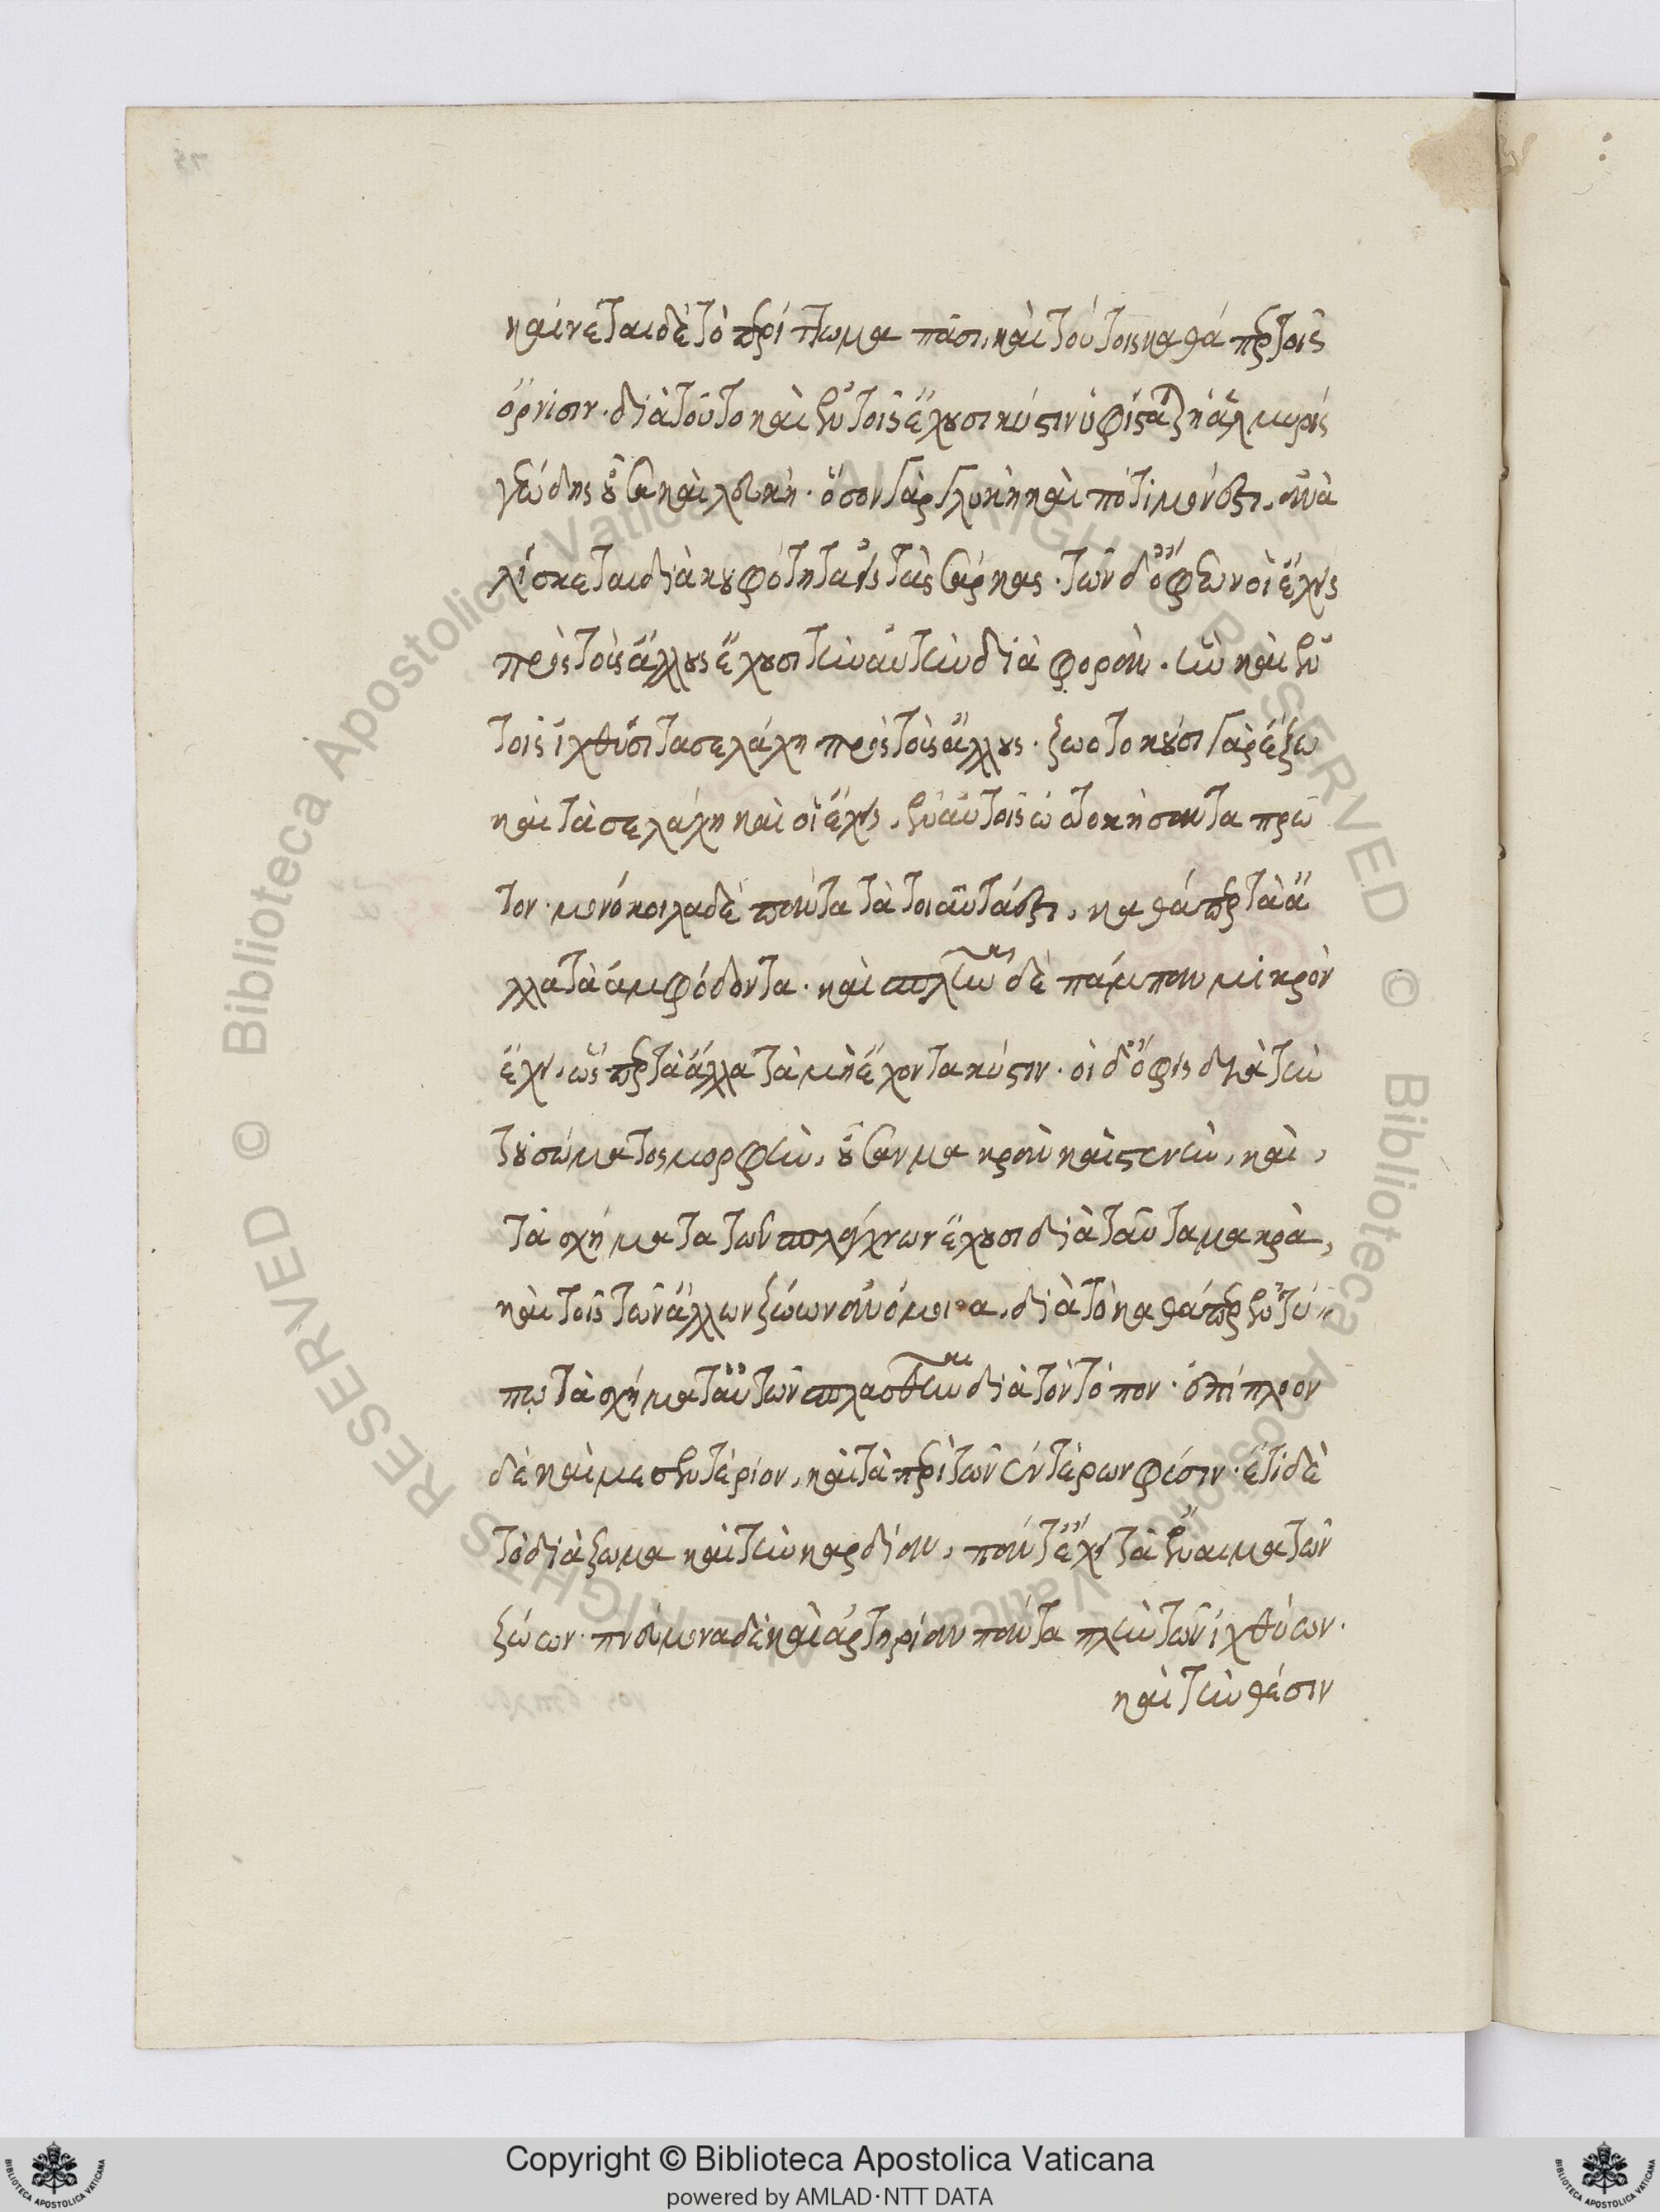 καίνεται δὲ τὸ περίττωμα πᾶσι καὶ τούτοις καθάπερ τοῖς
ὄρνισιν· διὰ τοῦτο καὶ ἐν τοῖς ἔχουσι κύστιν ὑφίσταται ἡ ἁλμυρὶς
γεώδης οὖσα καὶ λευκή· ὅσον γὰρ γλυκὺ καὶ πότιμόν ἐστι, ἀνα
λίσκεται διὰ κουφότητα εἰς τὰς σάρκας· τῶν δ' ὄφεων οἱ ἔχεις
πρὸς τοὺς ἄλλους ἔχουσι τὴν αὐτὴν διαφοράν, ἣν καὶ ἐν
τοῖς ἰχθύσι τὰ σελάχη πρὸς τοὺς ἄλλους· ζωοτοκοῦσι γὰρ ἔξω
καὶ τὰ σελάχη καὶ οἱ ἔχεις, ἐν αὐτοῖς ᾠοτοκήσαντα πρῶ
τον· μονόκοιλα δὲ πάντα τὰ τοιαῦτά ἐστι, καθάπερ τὰ ἄ
λλα τὰ ἀμφόδοντα· καὶ σπλῆνας δὲ πάμπαν μικρὸν
ἔχει, ὥσπερ τὰ ἄλλα τὰ μὴ ἔχοντα κύστιν· οἱ δ' ὄφεις διὰ τὴν
τοῦ σώματος μορφὴν, οὖσαν μακρὰν καὶ στενὴν, καὶ,
τὰ σχήματα τῶν σπλάγχνων ἔχουσι διὰ ταῦτα μακρὰ,
καὶ τοῖς τῶν ἄλλων ζώων ἀνόμοια, διὰ τὸ καθάπερ ἐν τύ
πῳ τὰ σχήματ' αὐτῶν πλασθῆναι διὰ τὸν τόπον· ἐπίπλοον
δὲ καὶ μεσεντέριον, καὶ τὰ περὶ τῶν ἐντέρων φύσιν· ἔτι δὲ
τὸ διάζωμα καὶ τὴν καρδίαν, πάντ' ἔχει τὰ ἔναιμα τῶν
ζώων· πνεύμονα δὲ καὶ ἀρτηρίαν πάντα πλὴν τῶν ἰχθύων·
καὶ τὴν θέσιν
Copyright © Biblioteca Apostolica Vaticana
powered by AMLAD·NTT DATA